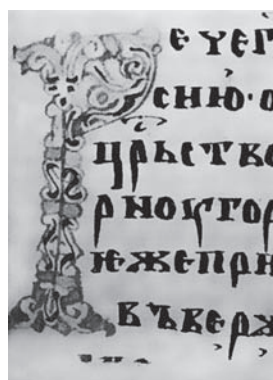 Рече г
сию · о
црьство
рноугор
ѥжепри
въверж